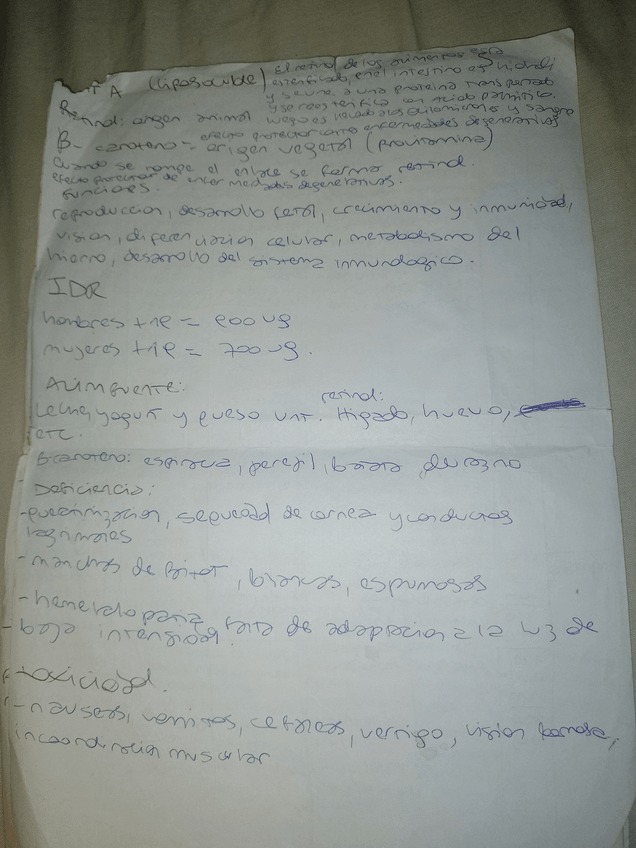 A (liposoluble) El retinol de los alimentos esta
esterificado, en el intestino es hidroli
y se une a una proteina transportado
y se reesterifica con acido palmitico.
luego es llevado a los quilomicrones y sangre
Retinol: origen animal
efecto protector contra enfermedades degenerativas
B- caroteno = origen vegetal (provitamina)
Cuando se rompe el enlace se forma retinol.
efecto protector de enfermedades degenerativas.
funciones.
reproduccion, desarrollo fetal, crecimiento y inmunidad,
vision, diferenciacion celular, metabolismo del
hierro, desarrollo del sistema inmunologico.
IDR
hombres +19 = 900 ug
mujeres +19 = 700 ug.
Alim fuente:
retinol:
Leche, yogurt y queso unt. Higado, huevo,
etc.
B-caroteno: espinaca, perejil, batata, durazno
- Deficiencia:
- queratinizacion, sequedad de cornea y conductos
lagrimales
- manchas de Bitot, blancas, espumosas
- hemeralopania, falta de adaptacion a la luz de
- baja intensidad.
toxicidad.
- nauseas, vomitos, cefaleas, vertigo, vision borrosa,
incoordinacion muscular